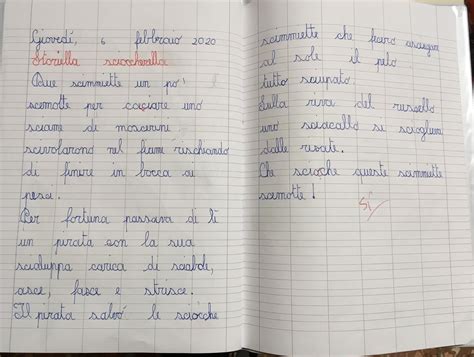 Giovedì, 6 febbraio 2020
Storiella sciocchella
Due scimmiette un po'
scemotte per cacciare uno
sciame di moscerini
scivolarono nel fiume rischiando
di finire in bocca ai
pesci.
Per fortuna passava di lì
un pirata con la sua
scialuppa carica di sciabole,
asce, fasce e strisce.
Il pirata salvò le sciocche
scimmiette che fecero asciugare
al sole il pelo
tutto sciupato.
Sulla riva del ruscello
uno sciacallo si
dalle risate.
Che scioche queste scimmiette
scemotte!
Sì